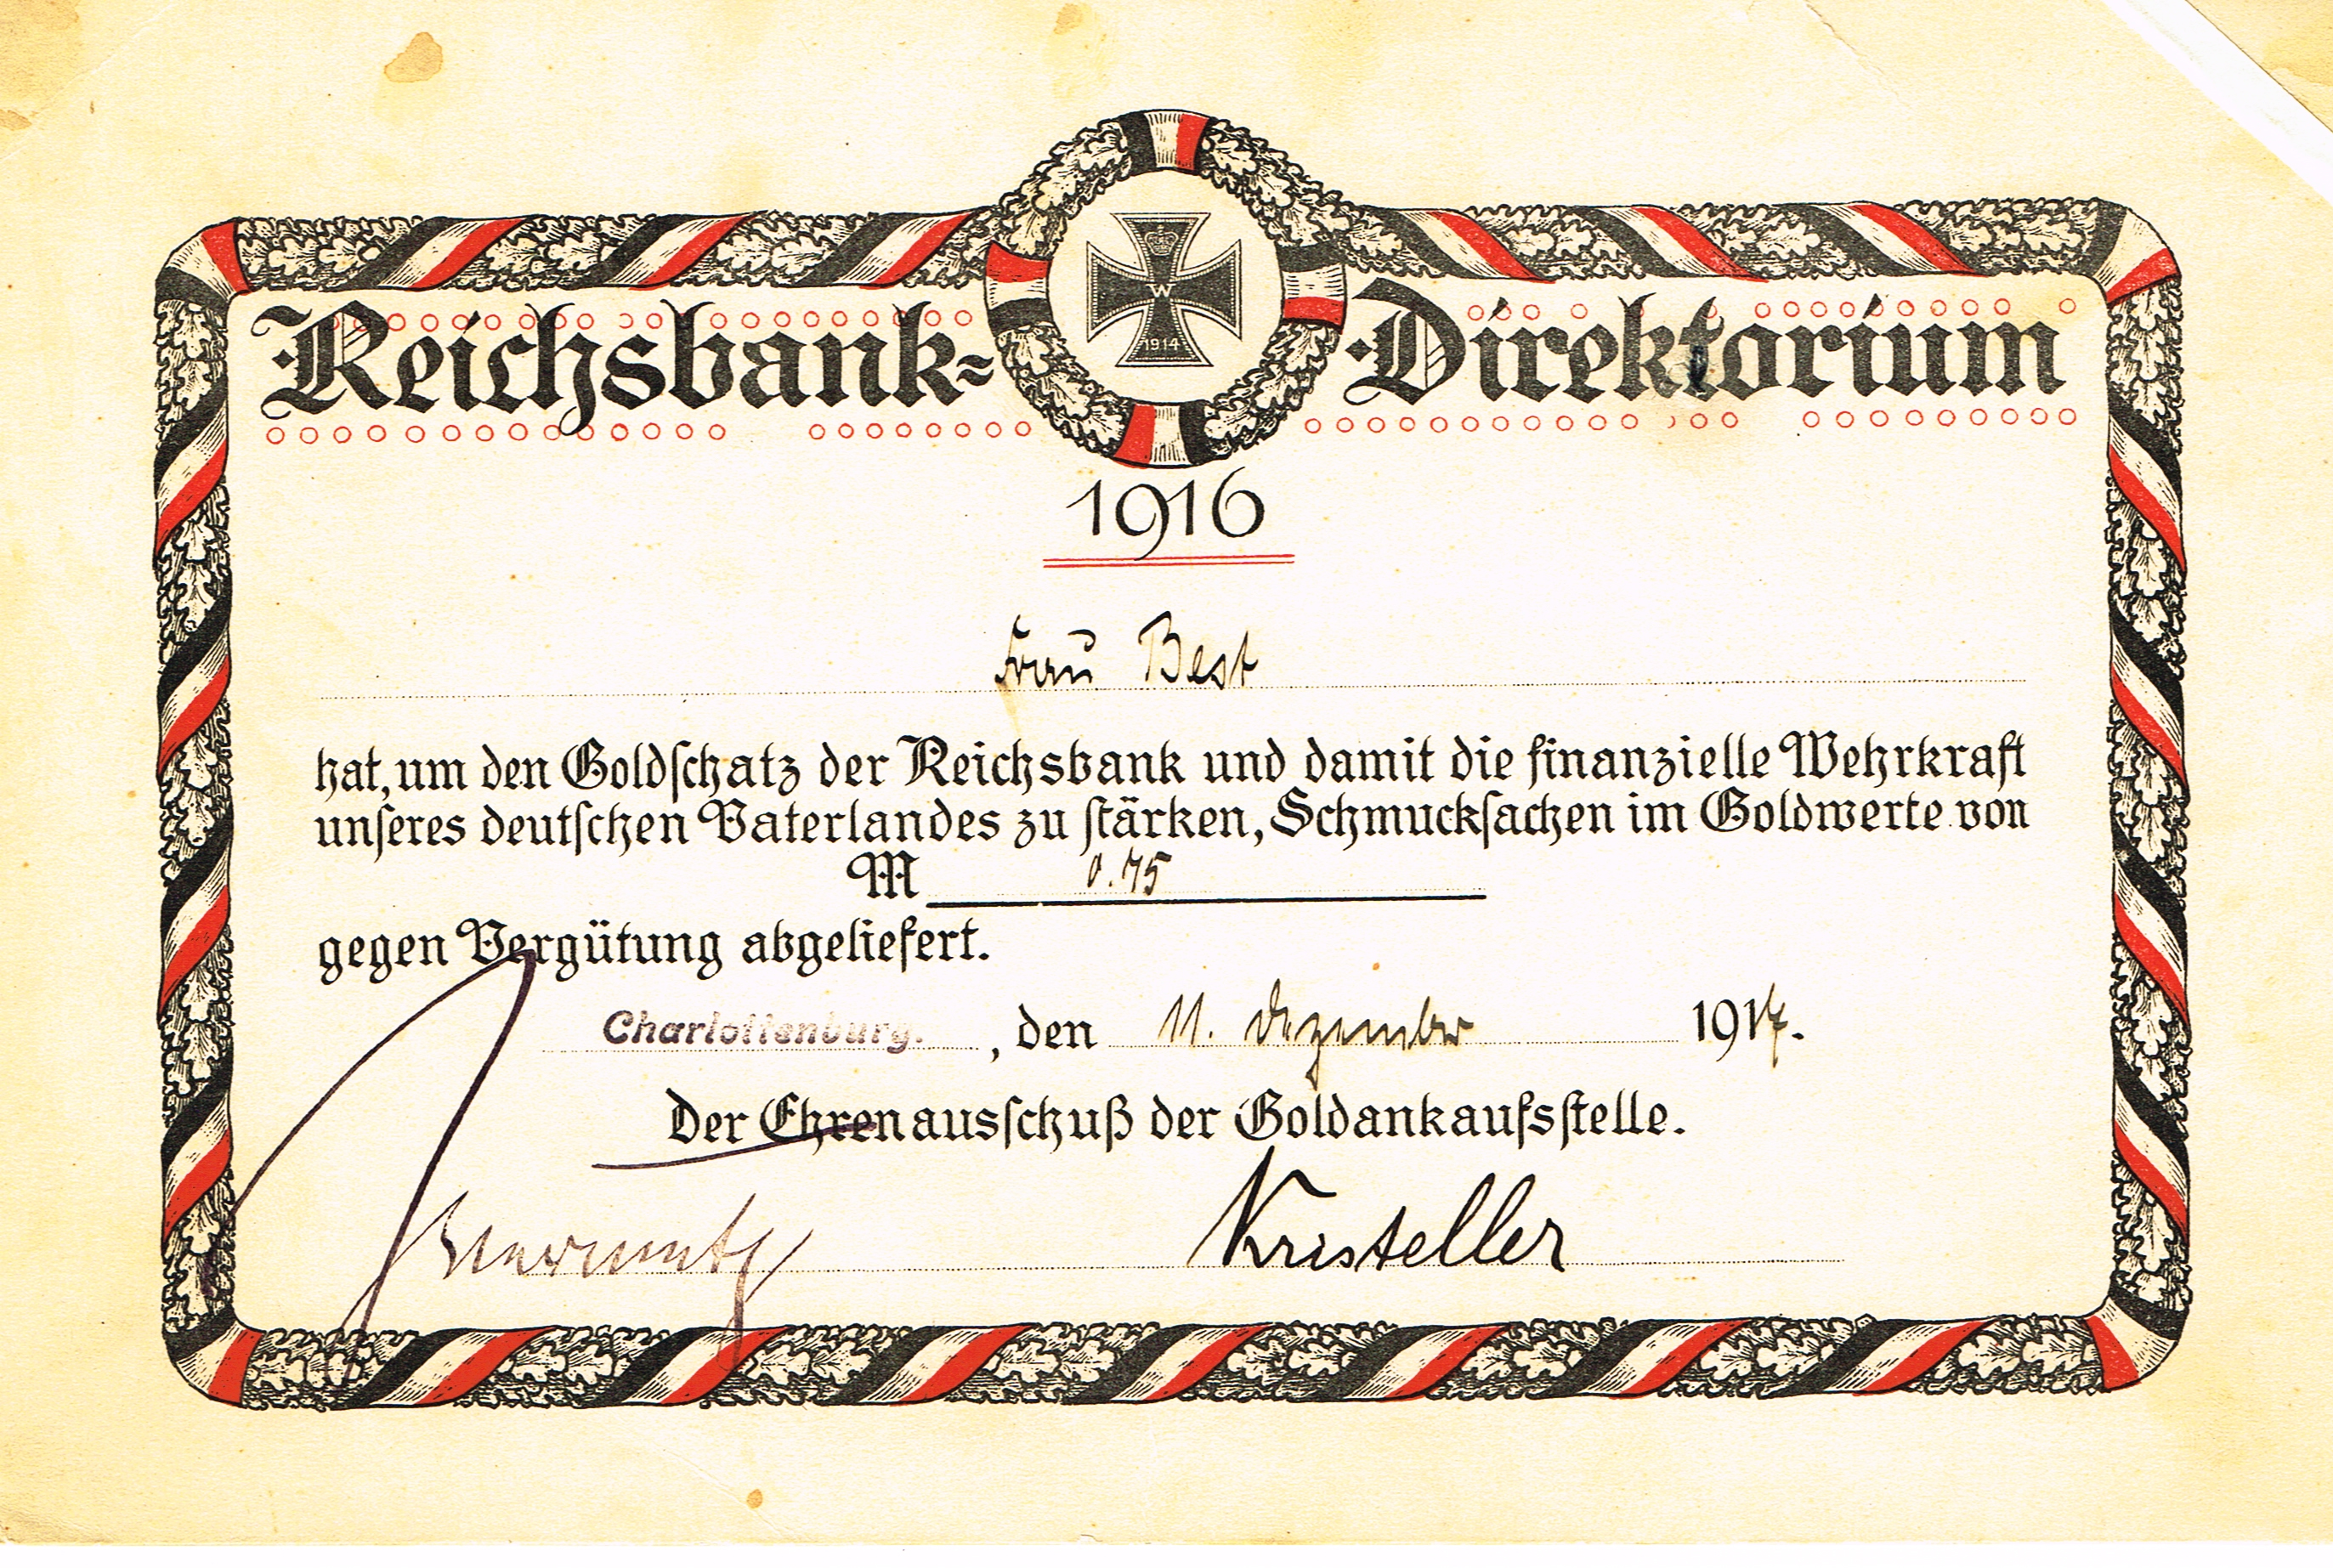 Reichsbank-Direktorium
W
1914
1916
Frau Best
hat, um den Goldſchatz der Reichsbank und damit die finanzielle Wehrkraft
unſeres deutſchen Vaterlandes zu ſtärken, Schmuckſachen im Goldwerte von
M 0.75
gegen Vergütung abgeliefert.
Charlottenburg. , den 11. Dezember 1917.
Der Ehrenausſchuß der Goldankaufsſtelle.
Kristeller